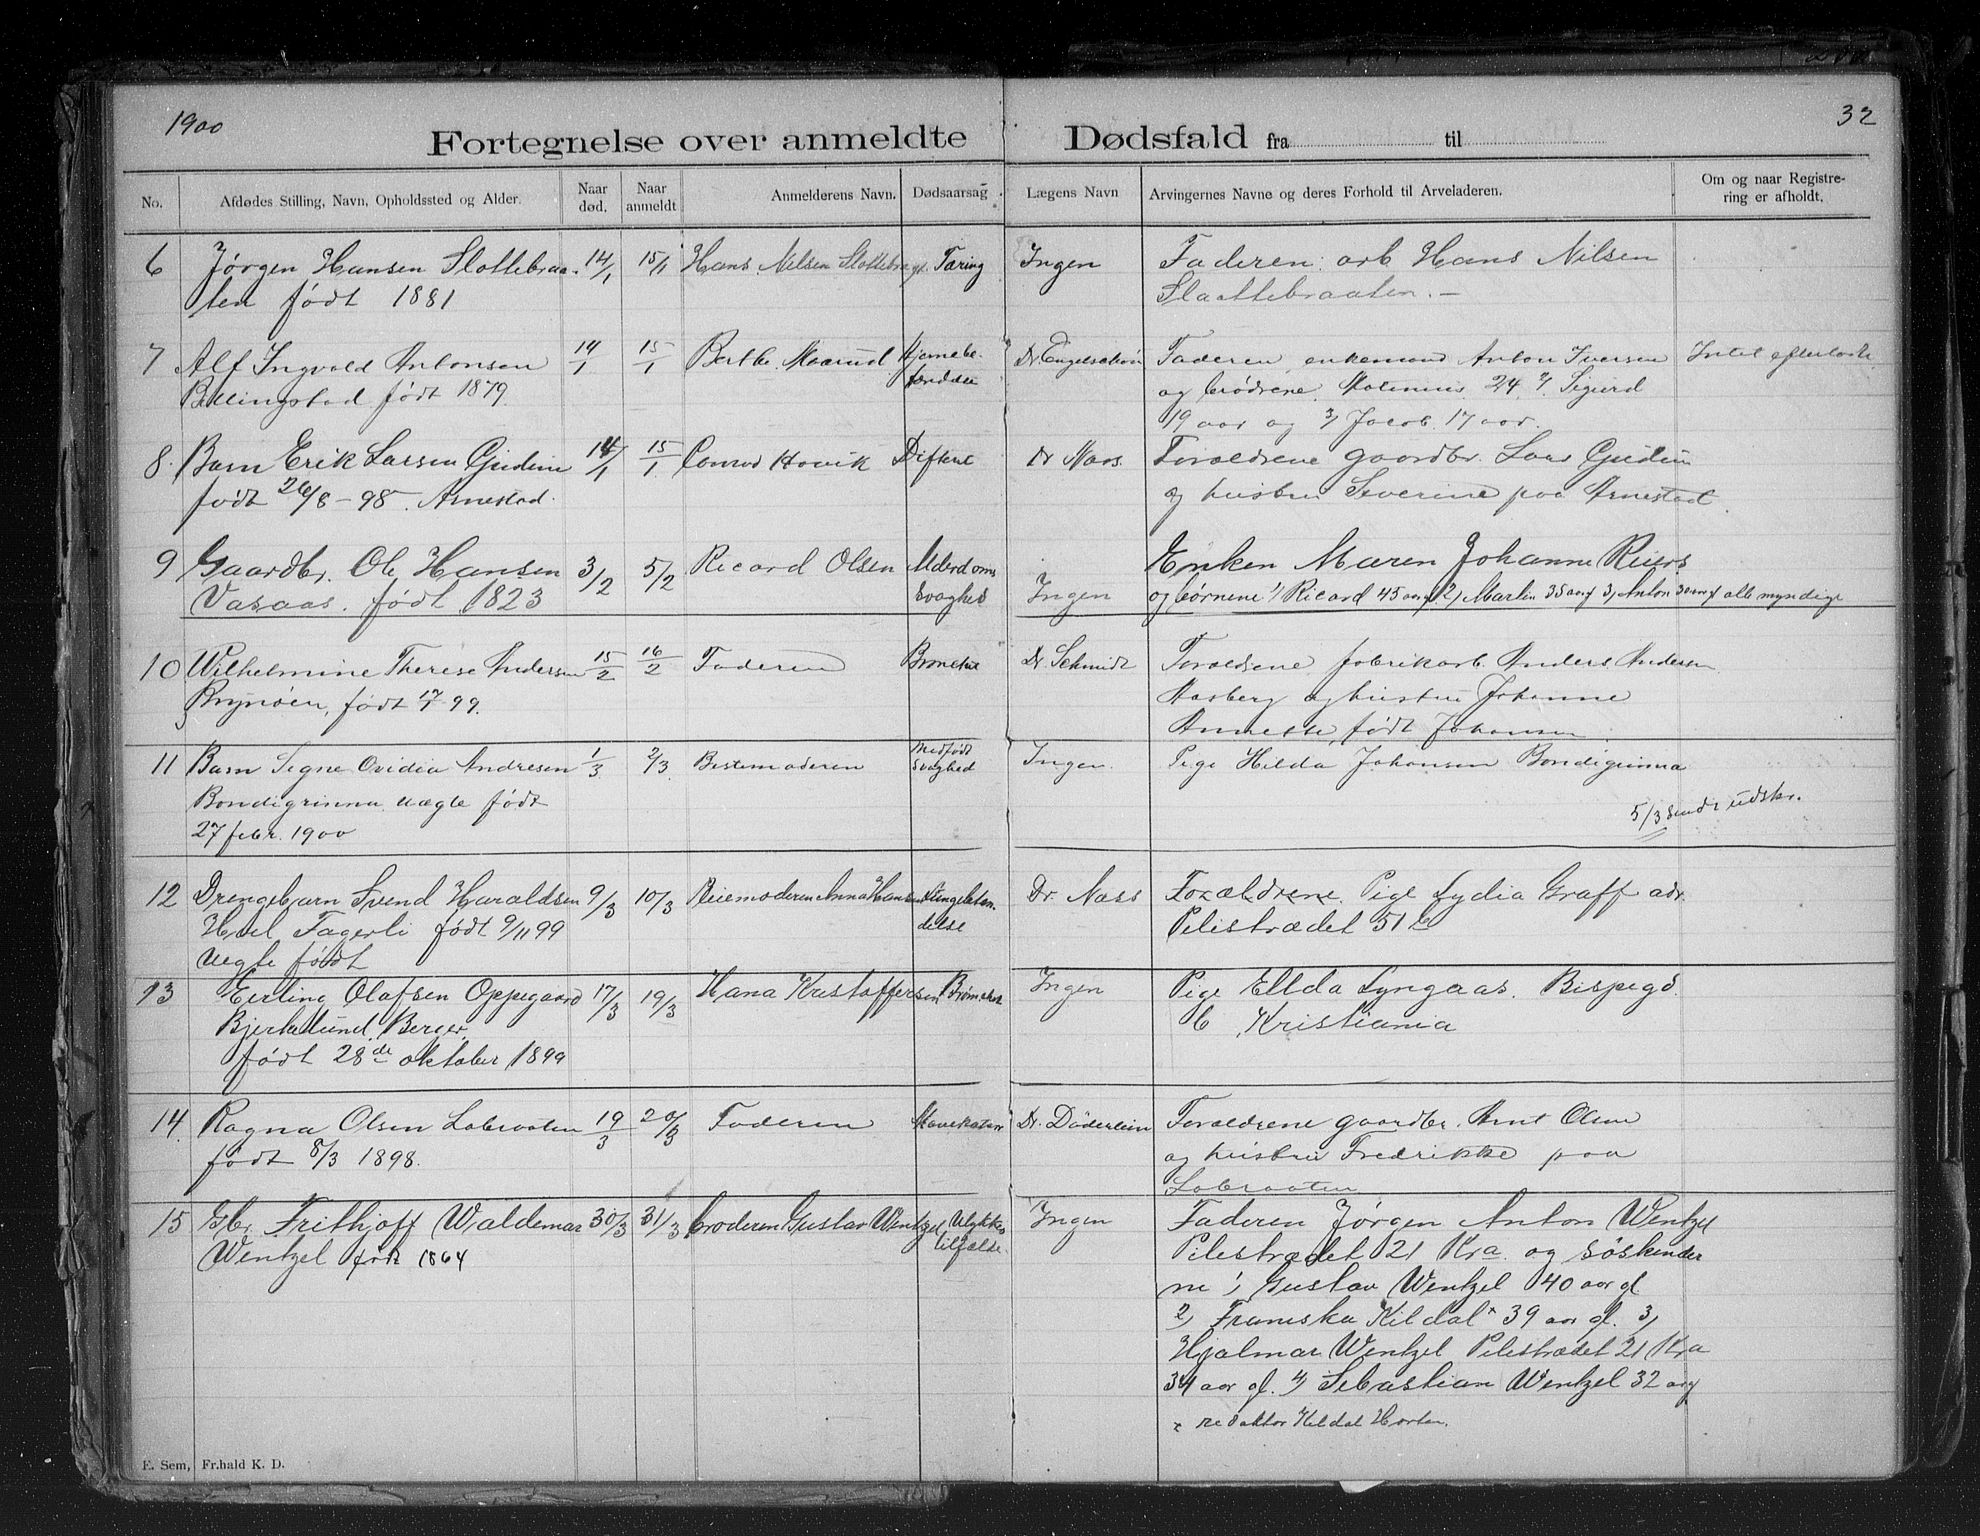 1900
32
Fortegnelse over anmeldte Dødsfald fra til
No. Afdødes Stilling, Navn, Opholdssted og Alder. Naar død. Naar anmeldt Anmelderens Navn. Dødsaarsag Lægens Navn Arvingernes Navne og deres Forhold til Arveladeren. Om og naar Registrering er afholdt.
6 Jørgen Hansen Slottebraa- 14/1 15/1 Hans Nilsen Slottebr Tæring Ingen Faderen: arb Hans Nilsen
ten født 1881 Slaattebraaten. —
7 Alf Ingvold Antonsen 14/1 15/1 Berthe Maarud Hjernebe- Dr Engelschiøn Faderen, enkemand Anton Iversen Intet efterladt
Billingstad født 1879. og brødrene Sigurd
19 aar og 3) Jacob 17 aar.
8. Barn Erik Larsen Gudim 14/1 15/1 Conrad Hovik Difteri dr Næss. Foraldrene gaardbr. Lars Gudim
født 26/8 - 98. Arnestad. og hustru Severine paa Arnestad.
9 Gaardbr. Ole Hansen 3/2 5/2 Ricard Olsen Alderdoms Enken Maren Johanne Reiers
Vasaas. født 1823 svaghed Ingen og børnene 1) Ricard 45 aar gl. 2) Martin 35 aar gl 3) Anton 30 aar gl alle myndige
10 Wilhelmine Therese Andersen 15/2 16/2 Faderen Bronchit Dr. Schmidt Foraldrene fabrikarb. Anders Andersen
Brynøen, født 99. Aasberg og hustru Johanne
Annette, født Johansen
11 Barn Signe Ovidia Andresen 1/3 2/3 Bestemoderen Medfødt svaghed Ingen. Pige Hilda Johansen Bondigrinna
Bondigrinna uægte født
27 febr. 1900 5/3 sendt udskr.
12 Drengebarn Svend Haraldsen 9/3 10/3 Pleiemoderen Anna Hansen Lungebetæn- Dr. Næss Forældrene. Pige Lydia Graff adr.
Hvel Fagerli født 9/11 99 delse Pilestrædet 51
uegte født
13 Eerling Olafsen Oppegaard 17/3 19/3 Hana Kristoffersen Ingen Pige Ellda Lyngaas. Bispegd.
Bjerkelund, Berger. 6 Kristiania
født 28de oktober 1899
14. Ragna Olsen Labraaten 19/3 20/3 Faderen Mavekatarr Dr. Döderlein Foraldrene gaardbr. Arnt Olsen
født 8/3 1898. og hustru Fredrikke paa
Labraaten
15 Gbr. Frithjoff Waldemar 30/3 31/3 broderen Gustav Wentzel Ulykkes Ingen Faderen Jørgen Anton Wentzel
Wentzel født 1864 tilfælde. Pilestrædet 21 Kra og søskender
ne 1) Gustav Wentzel 40 aar gl
2) Franciska Kildal x 39 aar gl. 3)
Hjalmar Wentzel Pilestrædet 21 Kra
34 aar gl. 4) Sebastian Wentzel 32 aar gl
x redaktør Kildal Horten.
E. Sem, Fr.hald K. D.